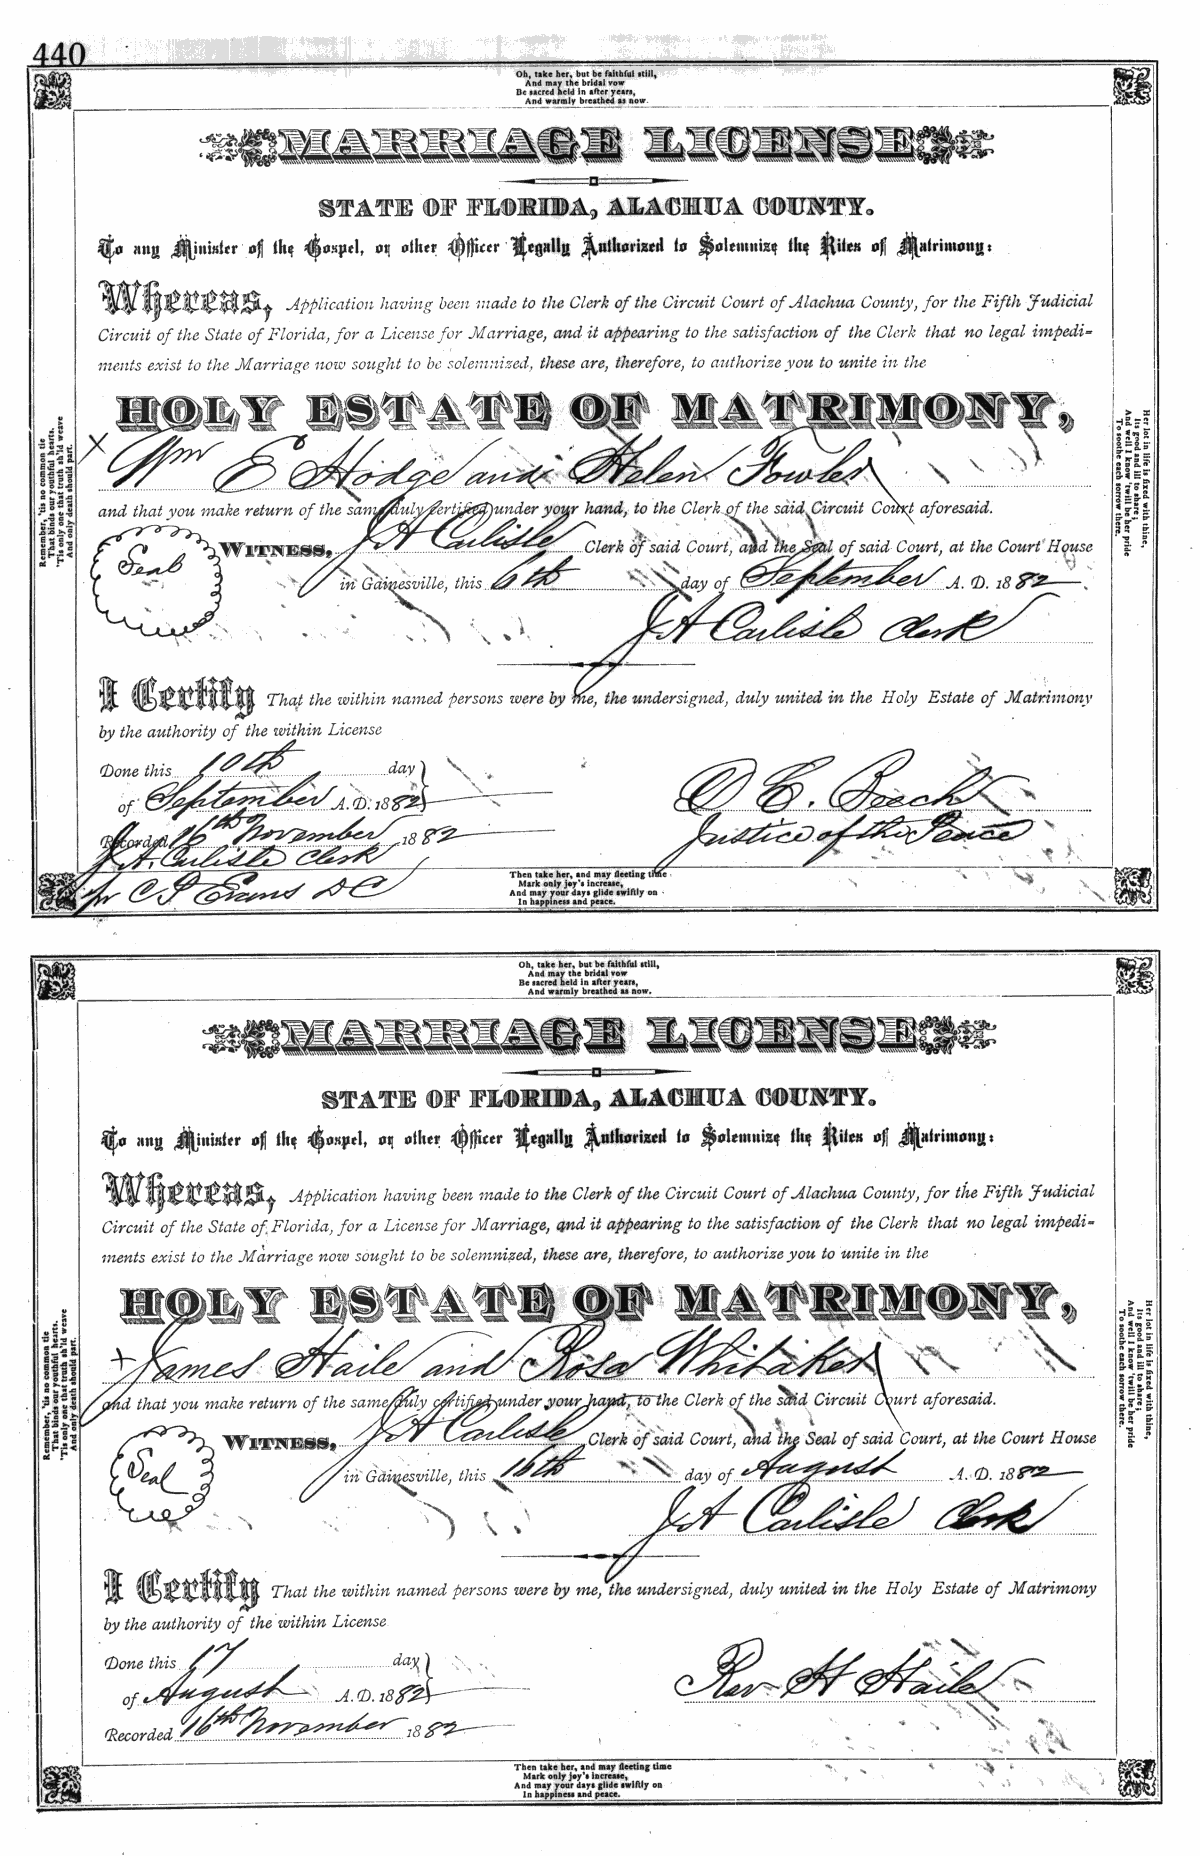 440
Oh, take her, but be faithful still,
And may the bridal vow
Be sacred held in after years,
And warmly breathed as now.
MARRIAGE LICENSE
STATE OF FLORIDA, ALACHUA COUNTY.
To any Minister of the Gospel, or other Officer Legally Authorized to Solemnize the Rites of Matrimony:
Whereas, Application having been made to the Clerk of the Circuit Court of Alachua County, for the Fifth Judicial
Circuit of the State of Florida, for a License for Marriage, and it appearing to the satisfaction of the Clerk that no legal impedi-
ments exist to the Marriage now sought to be solemnized, these are, therefore, to authorize you to unite in the
HOLY ESTATE OF MATRIMONY,
x Wm E Hodge and Helen Fowler
and that you make return of the same duly certified under your hand, to the Clerk of the said Circuit Court aforesaid.
Seal
WITNESS, J A Carlisle Clerk of said Court, and the Seal of said Court, at the Court House
in Gainesville, this 6th day of September A. D. 1882
J A Carlisle Clerk
I Certify That the within named persons were by me, the undersigned, duly united in the Holy Estate of Matrimony
by the authority of the within License
Done this 10th day
of September A.D. 1882
O E. Beech
Recorded 16th November 1882
Justice of the Peace
J. A. Carlisle Clerk
pr C P Evans D C
Then take her, and may fleeting time
Mark only joy's increase,
And may your days glide swiftly on
In happiness and peace.
Remember, 'tis no common tie
That binds our youthful hearts,
'Tis only one that truth sh'ld weave
And only death should part.
Her lot in life is fixed with thine,
Its good and ill to share;
And well I know 'twill be her pride
To soothe each sorrow there.
Oh, take her, but be faithful still,
And may the bridal vow
Be sacred held in after years,
And warmly breathed as now.
MARRIAGE LICENSE
STATE OF FLORIDA, ALACHUA COUNTY.
To any Minister of the Gospel, or other Officer Legally Authorized to Solemnize the Rites of Matrimony:
Whereas, Application having been made to the Clerk of the Circuit Court of Alachua County, for the Fifth Judicial
Circuit of the State of Florida, for a License for Marriage, and it appearing to the satisfaction of the Clerk that no legal impedi-
ments exist to the Marriage now sought to be solemnized, these are, therefore, to authorize you to unite in the
HOLY ESTATE OF MATRIMONY,
x James Haile and Rosa Whitaker
and that you make return of the same duly certified under your hand, to the Clerk of the said Circuit Court aforesaid.
Seal
WITNESS, J A Carlisle Clerk of said Court, and the Seal of said Court, at the Court House
in Gainesville, this 16th day of August A. D. 1882
J A Carlisle Clerk
I Certify That the within named persons were by me, the undersigned, duly united in the Holy Estate of Matrimony
by the authority of the within License
Done this 17 day
of August A.D. 1882
Rev H Haile
Recorded 16th November 1882
Then take her, and may fleeting time
Mark only joy's increase,
And may your days glide swiftly on
In happiness and peace.
Remember, 'tis no common tie
That binds our youthful hearts,
'Tis only one that truth sh'ld weave
And only death should part.
Her lot in life is fixed with thine,
Its good and ill to share;
And well I know 'twill be her pride
To soothe each sorrow there.